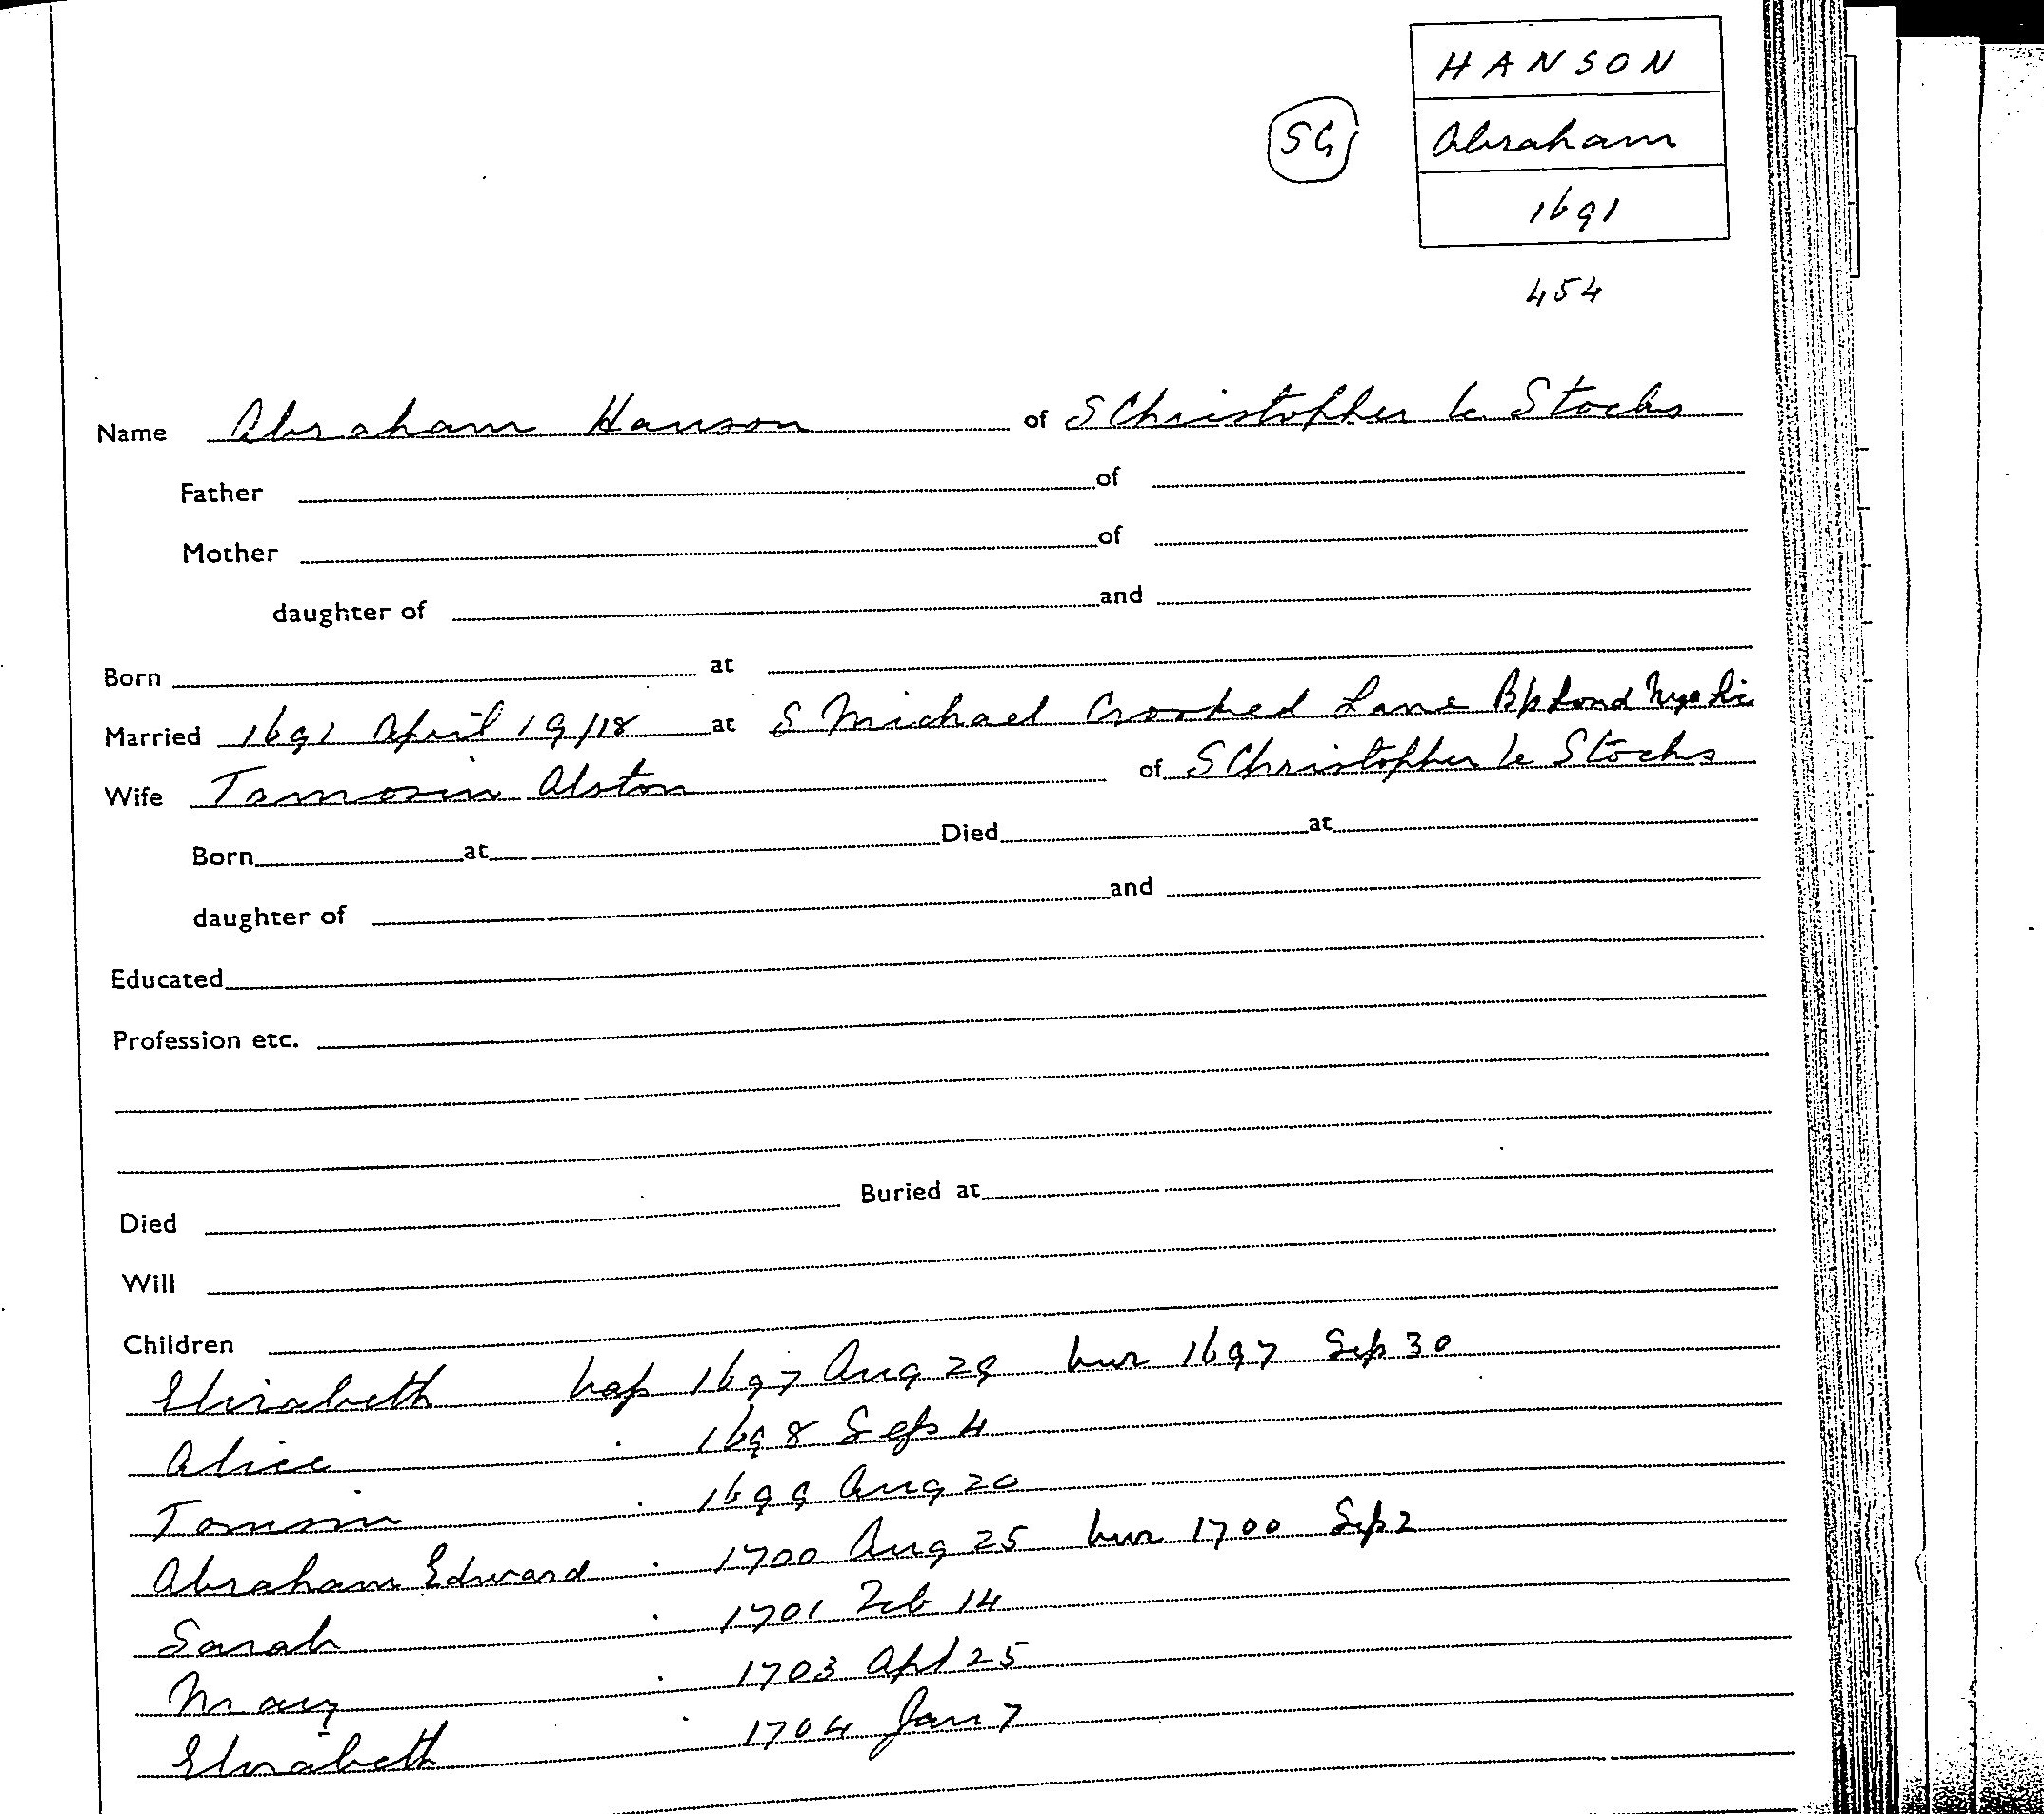 HANSON
SG
Abraham
1691
454
Name Abraham Hanson of S Christopher le Stocks
Father of
Mother of
daughter of and
Born at
Married 1691 April 19/18 at S Michael Crooked Lane Bp Lond Lic
Wife Tamosin Alston of S Christopher le Stocks
Born at Died at
daughter of and
Educated
Profession etc.
Died Buried at
Will
Children
Elizabeth bap 1697 Aug 29 bur 1697 Sep 30
Alice . 1698 Sep 4
. 1699 Aug 20
Abraham Edward . 1700 Aug 25 bur 1700 Sep 2
Sarah . 1701 Feb 14
Mary . 1703 Apl 25
Elizabeth . 1704 Jan 7